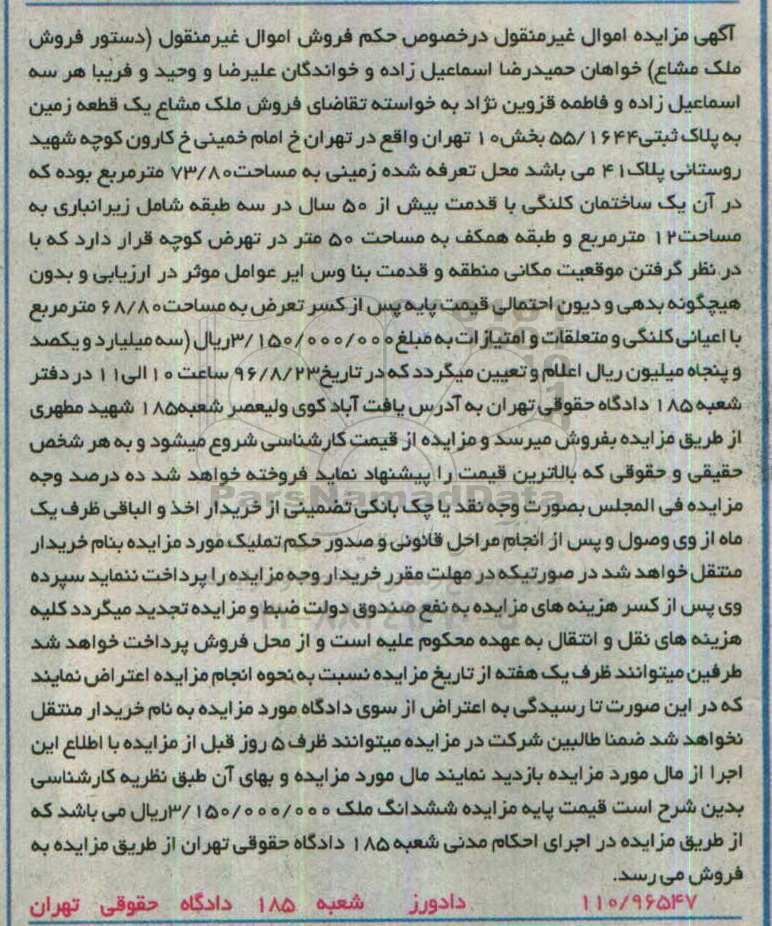 آگهی مزایده اموال غیرمنقول درخصوص حکم فروش اموال غیرمنقول (دستور فروش
ملک مشاع) خواهان حمیدرضا اسماعیل زاده و خواندگان علیرضا و وحید و فریبا هر سه
اسماعیل زاده و فاطمه قزوین نژاد به خواسته تقاضای فروش ملک مشاع یک قطعه زمین
به پلاک ثبتی۵۵/۱۶۴۴ بخش۱۰ تهران واقع در تهران خ امام خمینی خ کارون کوچه شهید
روستائی پلاک۴۱ می باشد محل تعرفه شده زمینی به مساحت۷۳/۸۰ مترمربع بوده که
در آن یک ساختمان کلنگی با قدمت بیش از ۵۰ سال در سه طبقه شامل زیرانباری به
مساحت۱۲ مترمربع و طبقه همکف به مساحت ۵۰ متر در تهرض کوچه قرار دارد که با
در نظر گرفتن موقعیت مکانی منطقه و قدمت بنا وس ایر عوامل موثر در ارزیابی و بدون
هیچگونه بدهی و دیون احتمالی قیمت پایه پس از کسر تعرض به مساحت۶۸/۸۰ مترمربع
با اعیانی کلنگی و متعلقات و امتیازات به مبلغ۳/۱۵۰/۰۰۰/۰۰۰ریال (سه میلیارد و یکصد
و پنجاه میلیون ریال اعلام و تعیین میگردد که در تاریخ۹۶/۸/۲۳ ساعت ۱۰ الی۱۱ در دفتر
شعبه ۱۸۵ دادگاه حقوقی تهران به آدرس یافت آباد کوی ولیعصر شعبه۱۸۵ شهید مطهری
از طریق مزایده بفروش میرسد و مزایده از قیمت کارشناسی شروع میشود و به هر شخص
حقیقی و حقوقی که بالاترین قیمت را پیشنهاد نماید فروخته خواهد شد ده درصد وجه
مزایده فی المجلس بصورت وجه نقد یا چک بانکی تضمینی از خریدار اخذ و الباقی ظرف یک
ماه از وی وصول و پس از انجام مراحل قانونی و صدور حکم تملیک مورد مزایده بنام خریدار
منتقل خواهد شد در صورتیکه در مهلت مقرر خریدار وجه مزایده را پرداخت ننماید سپرده
وی پس از کسر هزینه های مزایده به نفع صندوق دولت ضبط و مزایده تجدید میگردد کلیه
هزینه های نقل و انتقال به عهده محکوم علیه است و از محل فروش پرداخت خواهد شد
طرفین میتوانند ظرف یک هفته از تاریخ مزایده نسبت به نحوه انجام مزایده اعتراض نمایند
که در این صورت تا رسیدگی به اعتراض از سوی دادگاه مورد مزایده به نام خریدار منتقل
نخواهد شد ضمنا طالبین شرکت در مزایده میتوانند ظرف ۵ روز قبل از مزایده با اطلاع این
اجرا از مال مورد مزایده بازدید نمایند مال مورد مزایده و بهای آن طبق نظریه کارشناسی
بدین شرح است قیمت پایه مزایده ششدانگ ملک ۳/۱۵۰/۰۰۰/۰۰۰ریال می باشد که
از طریق مزایده در اجرای احکام مدنی شعبه ۱۸۵ دادگاه حقوقی تهران از طریق مزایده به
فروش می رسد.
۱۱۰/۹۶۵۴۷ دادورز شعبه ۱۸۵ دادگاه حقوقی تهران
ParsNamadData